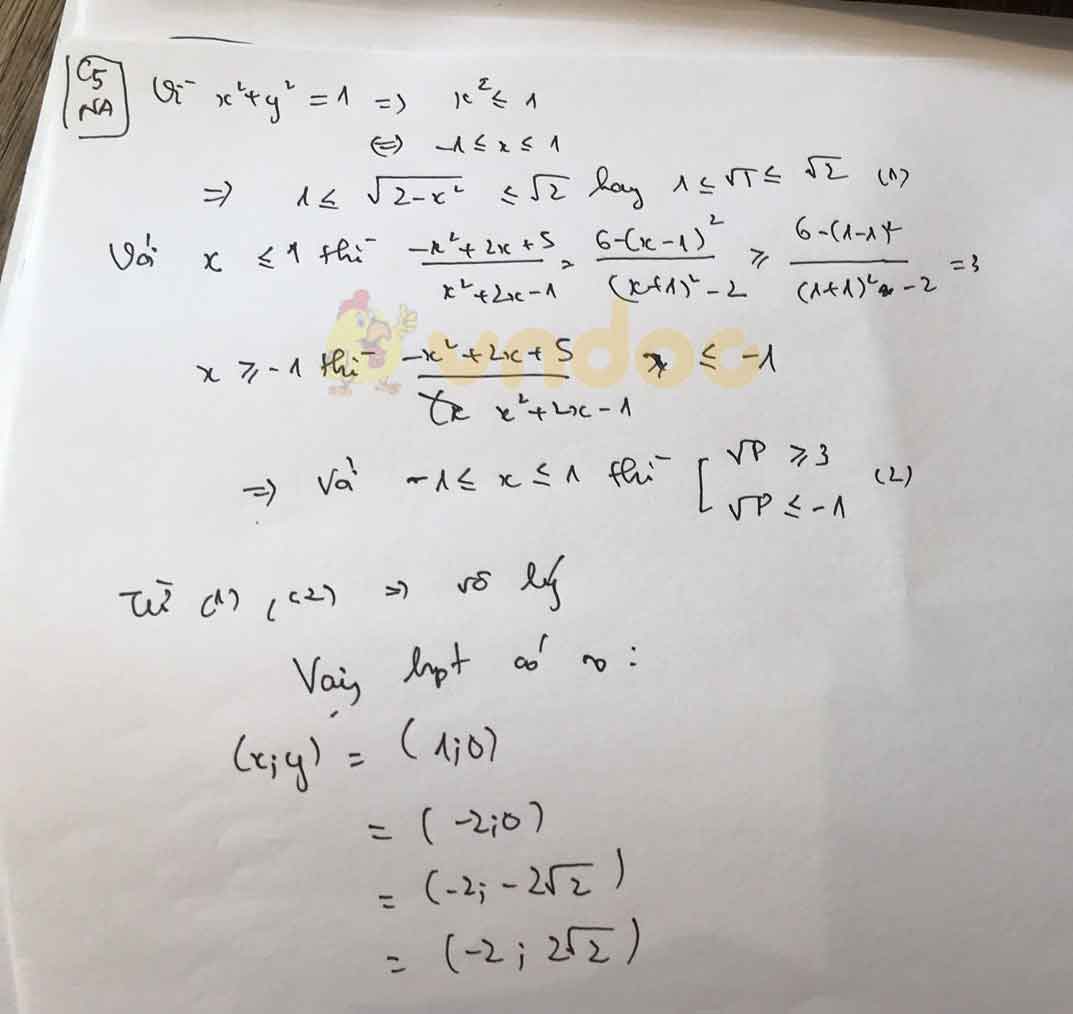 C5
NA
Vì x² + y² = 1 => x² ≤ 1
<=> -1 ≤ x ≤ 1
=> 1 ≤ √(2-x²) ≤ √2 hay 1 ≤ √T ≤ √2 (1)
Với x ≤ 1 thì (-x²+2x+5)/(x²+2x-1) = (6-(x-1)²)/((x+1)²-2) ≥ (6-(1-1)²)/((1+1)²-2) = 3
x ≥ -1 thì (-x²+2x+5)/(x²+2x-1) ≤ -1
=> Với -1 ≤ x ≤ 1 thì [ √P ≥ 3
√P ≤ -1 (2)
Từ (1), (2) => vô lý
Vậy hpt có no:
(x;y) = (1;0)
= (-2;0)
= (-2; -2√2)
= (-2; 2√2)
vndoc